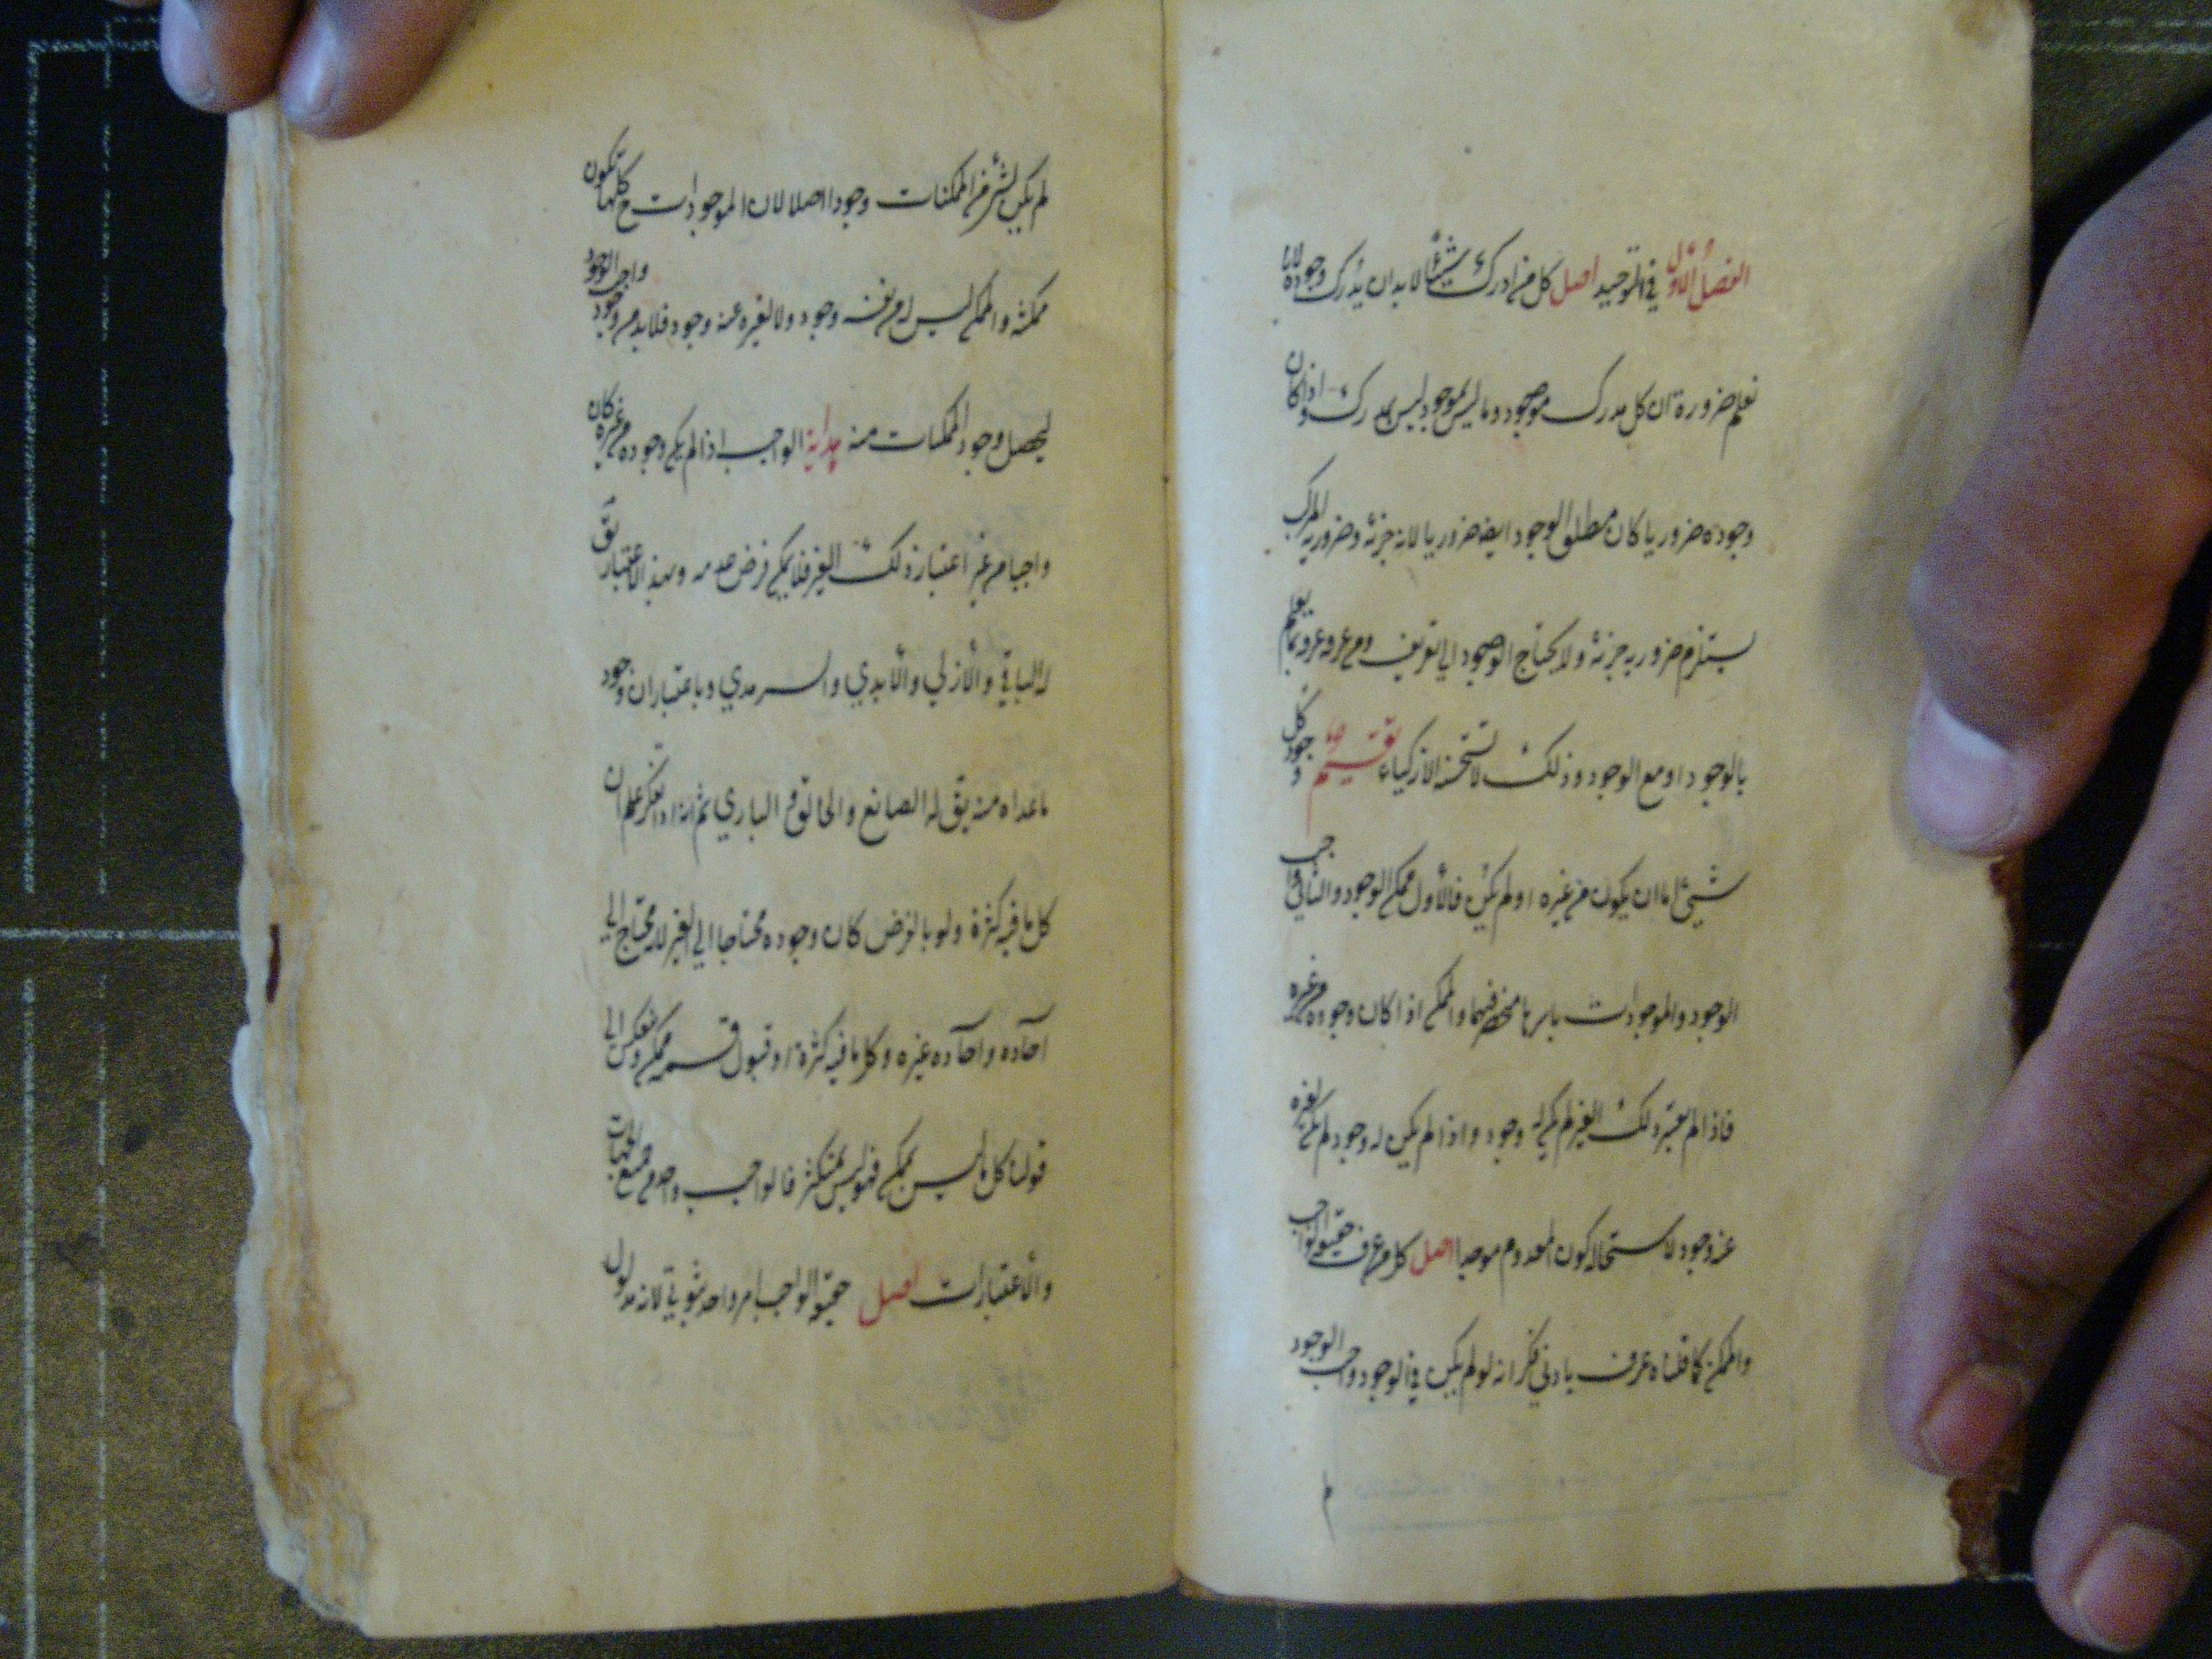 الفصل الاول في التوحيد اصل كل من ادرك شيئا لا بد ان يدرك وجوده لانا
نعلم ضرورة ان كل مدرك موجود وما ليس بموجود ليس بمدرك واذا كان
وجوده ضروريا كان مطلق الوجود ايضا ضروريا لانه جزئه وضرورية المركب
يستلزم ضرورية جزئه ولا يحتاج الوجود الى تعريف ومن عرفه عرفه بما يعلم
بالوجود او مع الوجود وذلك لا يستحسنه الازكياء تقسيم وجود كل
شيئ اما ان يكون من غيره او لم يكن فالأول ممكن الوجود والثاني واجب
الوجود والموجودات باسرها منحصر فيهما والممكن اذا كان وجوده من غيره
فاذا لم يعتبر ذلك الغير لم يكن له وجود واذا لم يكن له وجود لم يكن لغيره
عنه وجود لاستحالة كون المعدوم موجدا اصل كل من عرف حقيقة الواجب
والممكن كما قلناه عرف بادنى فكر انه لو لم يكن في الوجود واجب الوجود
لم يكن لشئ من الممكنات وجود اصلا لان الموجودات ح كلها تكون
ممكنة والممكن ليس له من نفسه وجود ولا لغيره عنه وجود فلا بد من وجود واجب الوجود
ليحصل وجود الممكنات منه هداية الواجب اذا لم يكن وجوده من غيره كان
واجبا من غير اعتبار ذلك الغير فلا يمكن فرض عدمه وبهذا الاعتبار يق
له الباقي والأزلي والأبدي والسرمدي وباعتبار ان وجود
ما عداه منه يق له الصانع والخالق والباري ثم انه اذا تفكر علم ان
كل ما فيه كثرة ولو بالفرض كان وجوده محتاجا الي الغير لانه محتاج الي
آحاده وآحاده غيره وكل ما فيه كثرة او قبول قسمة ممكن وينعكس الي
قولنا كل ما ليس بممكن فهو ليس بمتكثر فالواجب واحد من جميع الجهات
والأعتبارات اصل حقيقة الواجب امر واحد ثبوتي لانه مدلول